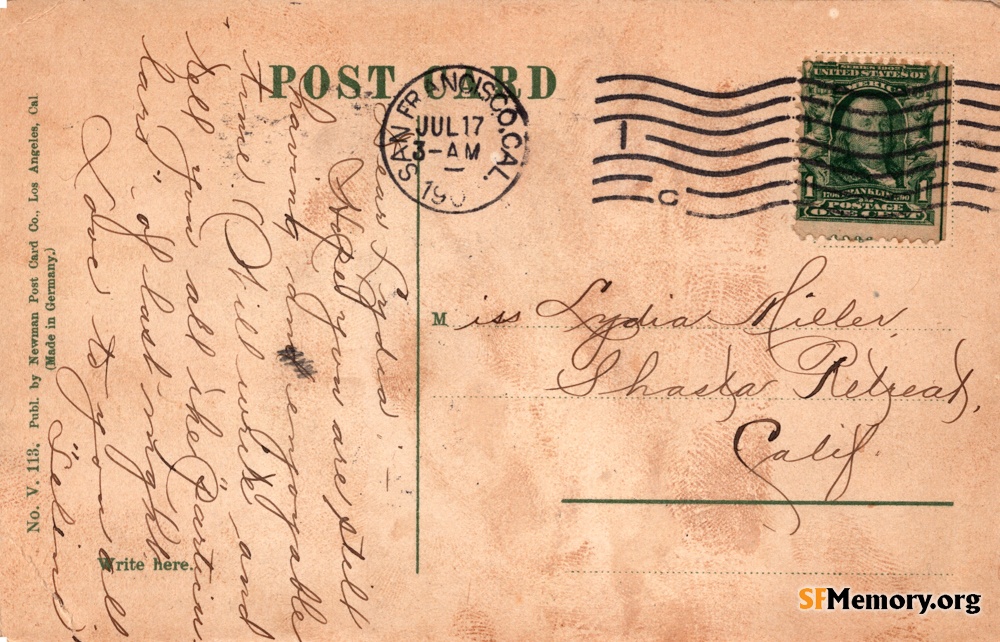 POST CARD
SAN FRANCISCO, CAL.
JUL 17
3-AM
190
1
C
SERIES 1902
UNITED STATES OF
AMERICA
1 FRANKLIN 1
POSTAGE
ONE CENT
Dear Lydia:-
Hope you are still
having an enjoyable
time. Will write and
tell you all the particu-
lars of last night
Love to you all
Miss Lydia Miller,
Shasta Retreat,
Calif.
Write here.
No. V. 113. Publ. by Newman Post Card Co., Los Angeles, Cal.
(Made in Germany.)
SFMemory.org